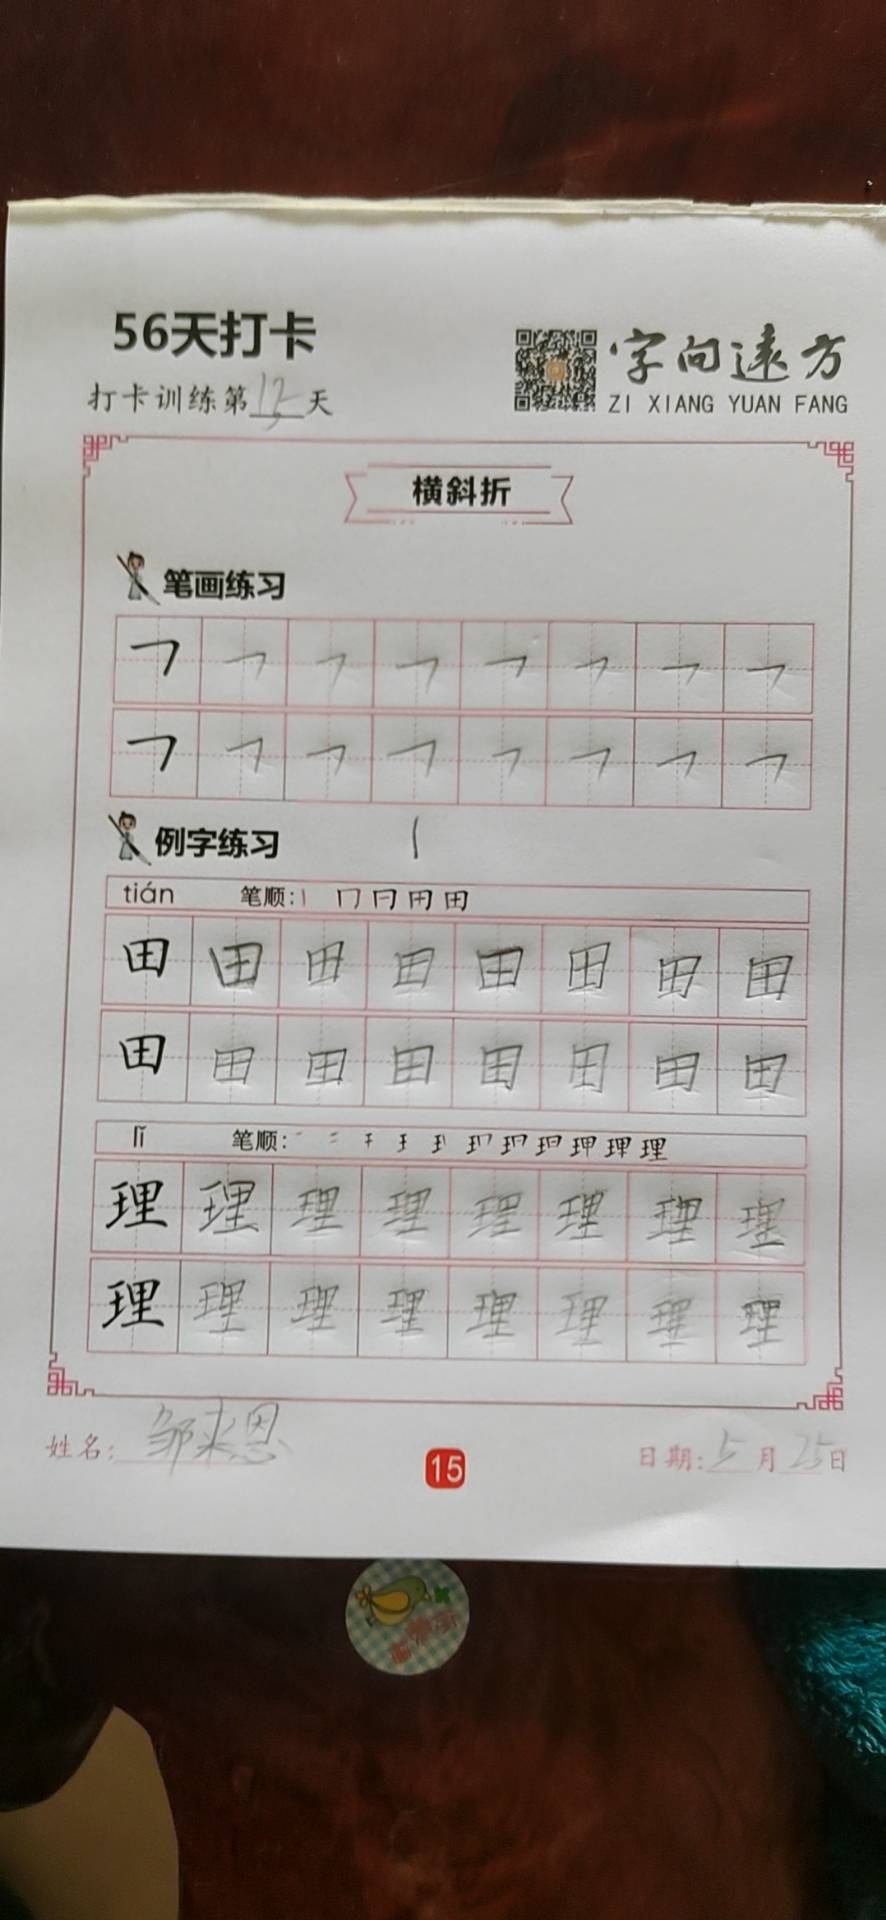 56天打卡
字向远方
打卡训练第15天
ZI XIANG YUAN FANG
横斜折
笔画练习
㇕ ㇕ ㇕ ㇕ ㇕ ㇕ ㇕ ㇕
㇕ ㇕ ㇕ ㇕ ㇕ ㇕ ㇕ ㇕
例字练习
tián 笔顺: 丨 冂 日 田 田
田 田 田 田 田 田 田 田
田 田 田 田 田 田 田 田
lǐ 笔顺:
理 理 理 理 理 理 理 理
理 理 理 理 理 理 理 理
姓名: 邹来恩
15
日期: 5月25日